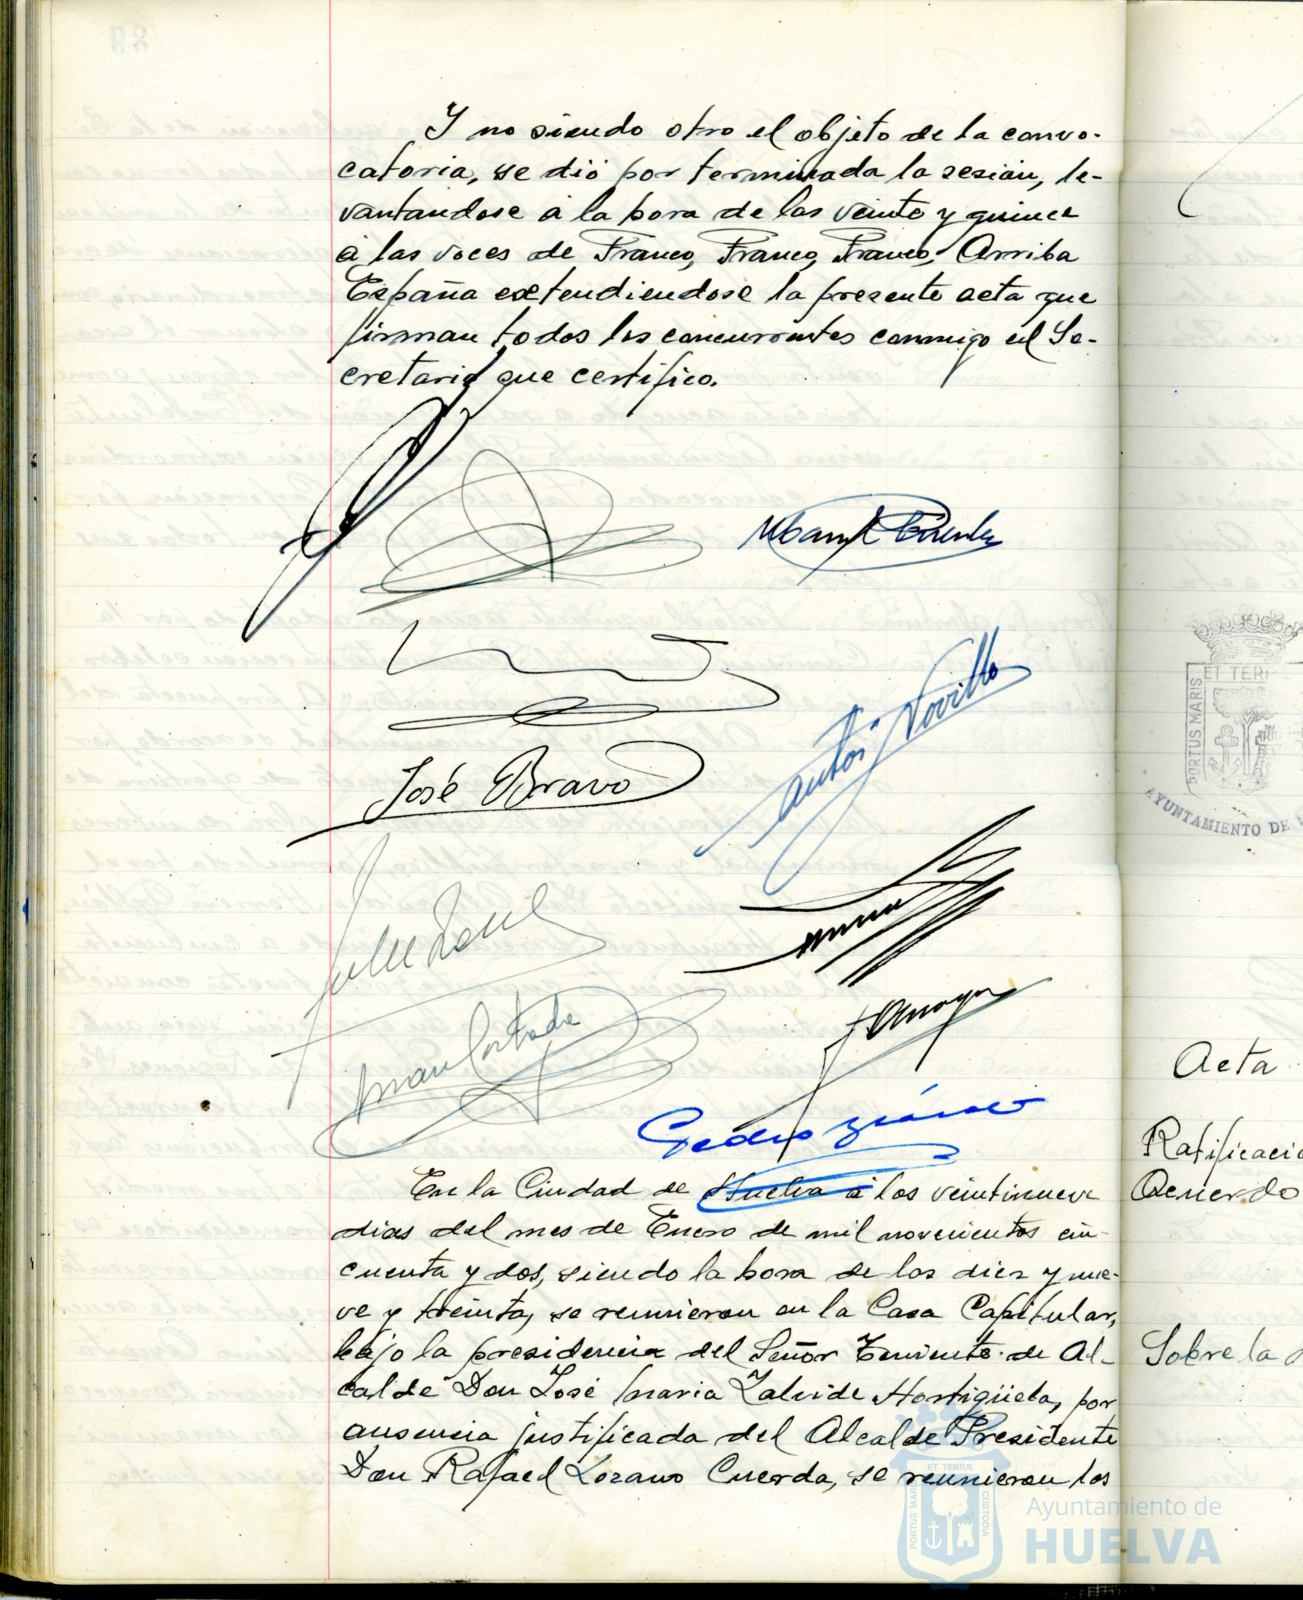 Y no siendo otro el objeto de la convo-
catoria, se dió por terminada la sesión, le-
vantandose a la hora de las veinte y quince
a las voces de Franco, Franco, Franco, Arriba
España extendiendose la presente acta que
firman todos los concurrentes conmigo el Se-
cretario que certifico.
José Bravo
Antº Novillo
Juan Cortada
Pedro
En la Ciudad de Huelva a los veintinueve
dias del mes de Enero de mil novecientos cin-
cuenta y dos, siendo la hora de las diez y nue-
ve y treinta, se reunieron en la Casa Capitular,
bajo la presidencia del Señor Teniente de Al-
calde Don José Maria Zalvide Hortigüela, por
ausencia justificada del Alcalde Presidente
Don Rafael Lozano Cuerda, se reunieron los
ET TERR
PORTUS MARIS
AYUNTAMIENTO DE
Acta
Ratificació
Acuerdo
Sobre la
ET TERRÆ
PORTUS MARIS
CUSTODIA
Ayuntamiento de
HUELVA